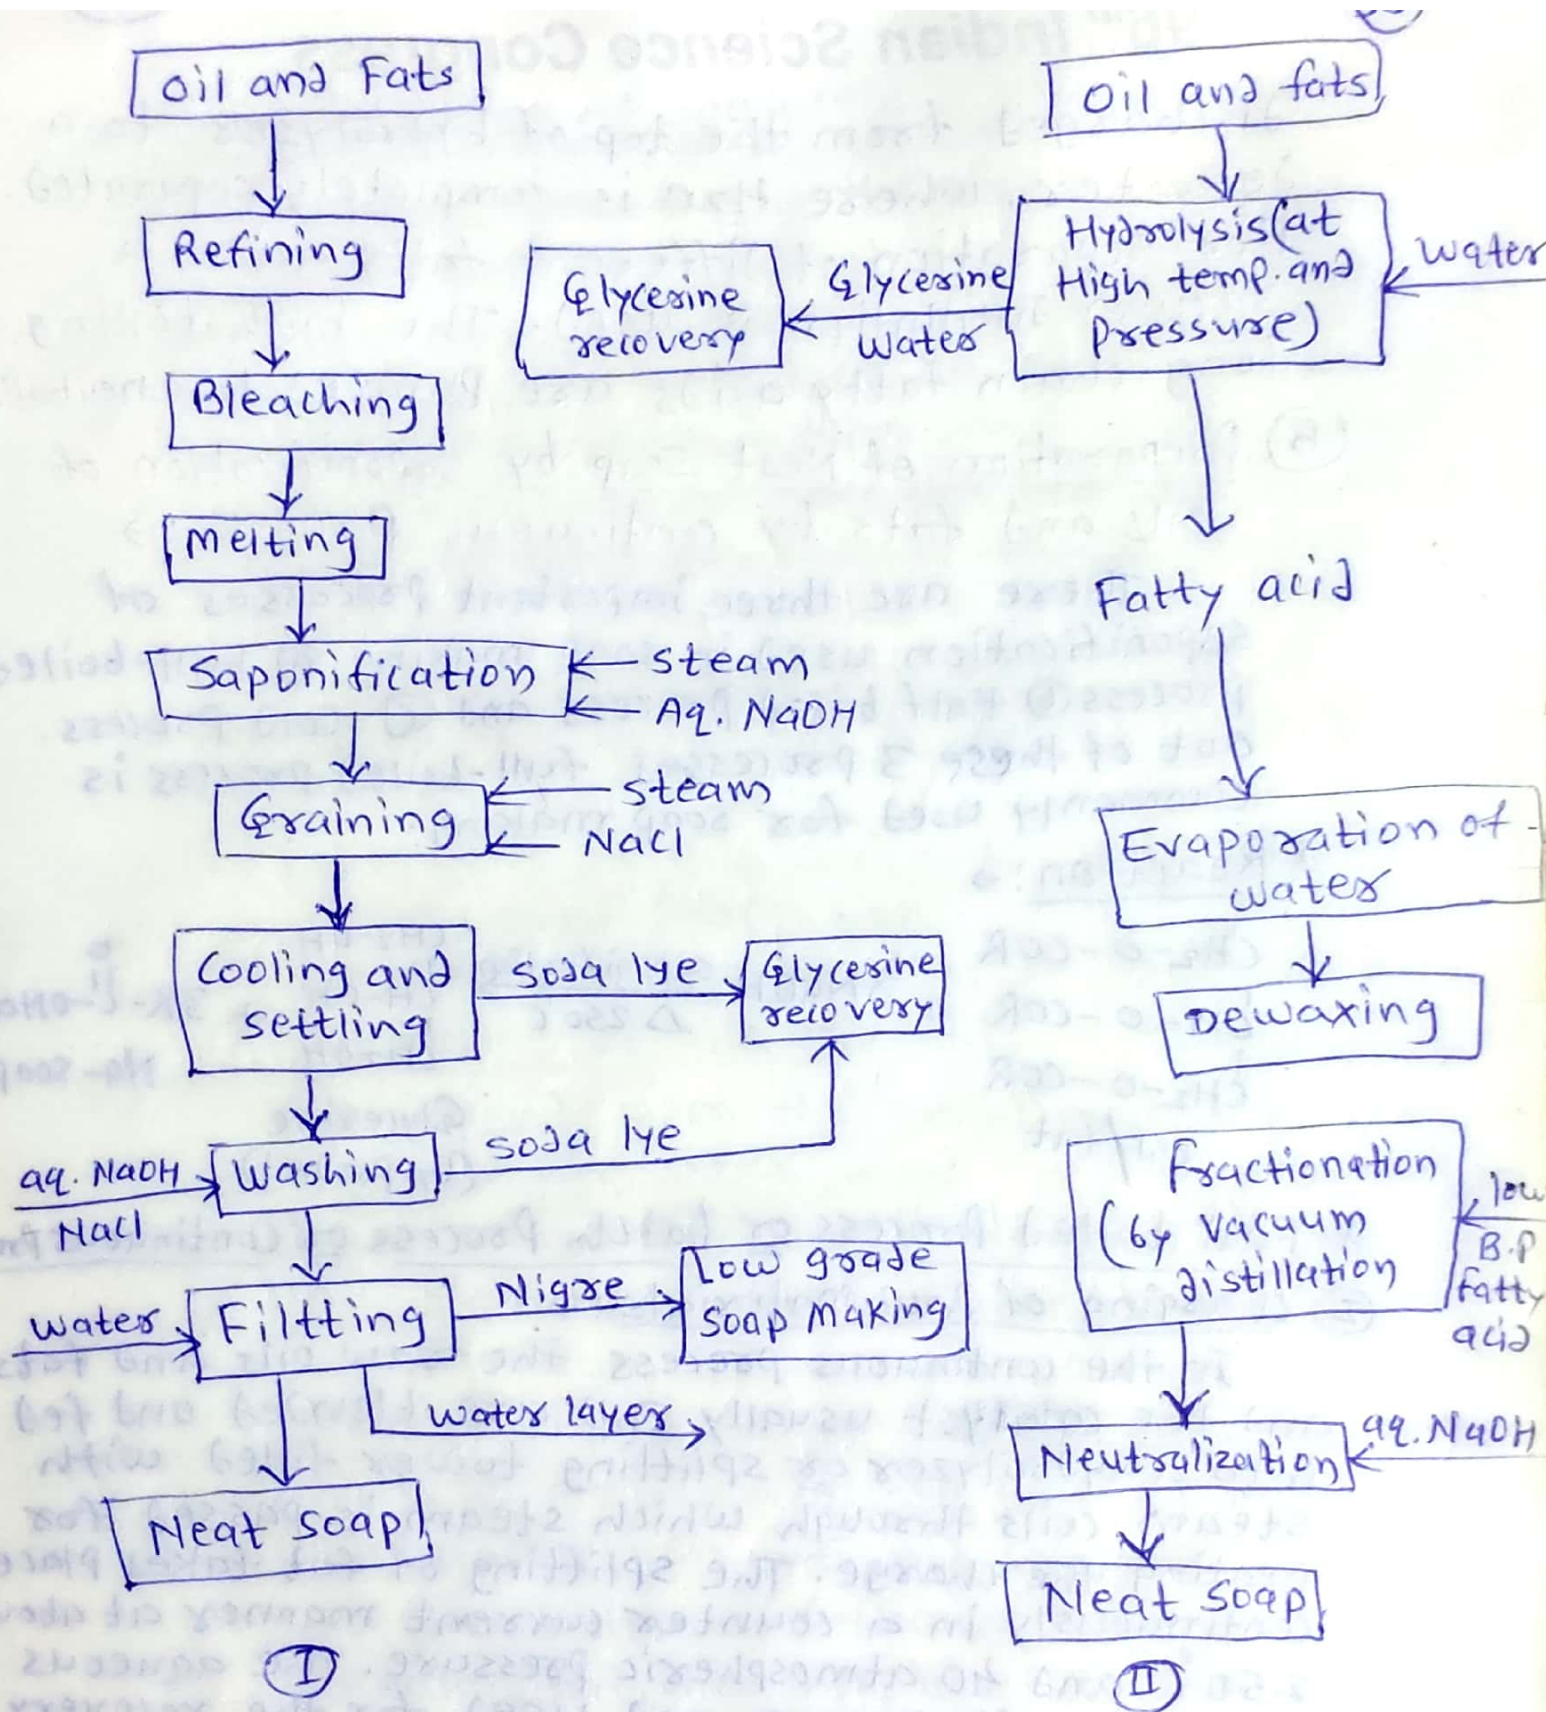 Oil and Fats
Refining
Bleaching
Melting
Saponification
steam
Aq. NaOH
Graining
steam
NaCl
Cooling and
settling
Soda lye
Glycerine
recovery
aq. NaOH
NaCl
Washing
Soda lye
water
Filtting
Nigre
Low grade
Soap Making
water layer
Neat Soap
I
Oil and fats
Hydrolysis (at
High temp. and
Pressure)
water
Glycerine
water
Glycerine
recovery
Fatty acid
Evaporation of
water
Dewaxing
Fractionation
(by vacuum
distillation
low
B.P
fatty
acid
Neutralization
aq. NaOH
Neat Soap
II